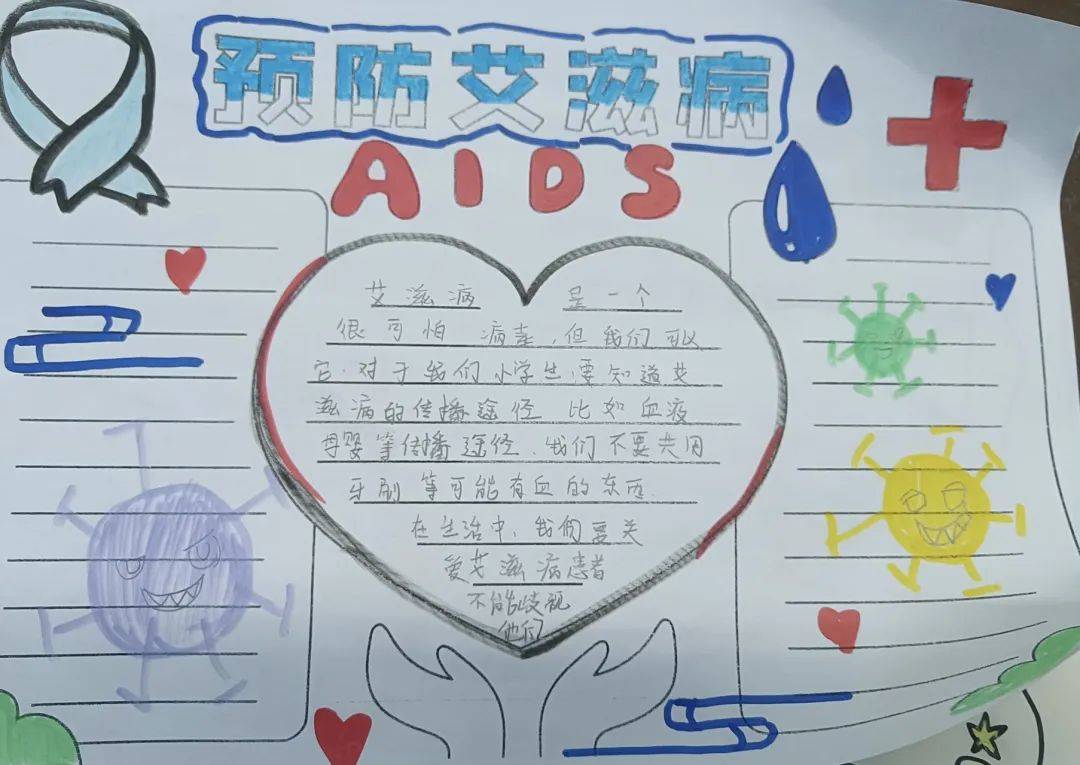 预防艾滋病
AIDS
艾滋病 是一个
很可怕 病毒,但我们可以
它.对于我们小学生要知道艾
滋病的传播途径 比如血液
母婴等传播途径.我们不要共用
牙刷 等可能有血的东西.
在生活中,我们要关
爱艾滋病患者
不能歧视
他们